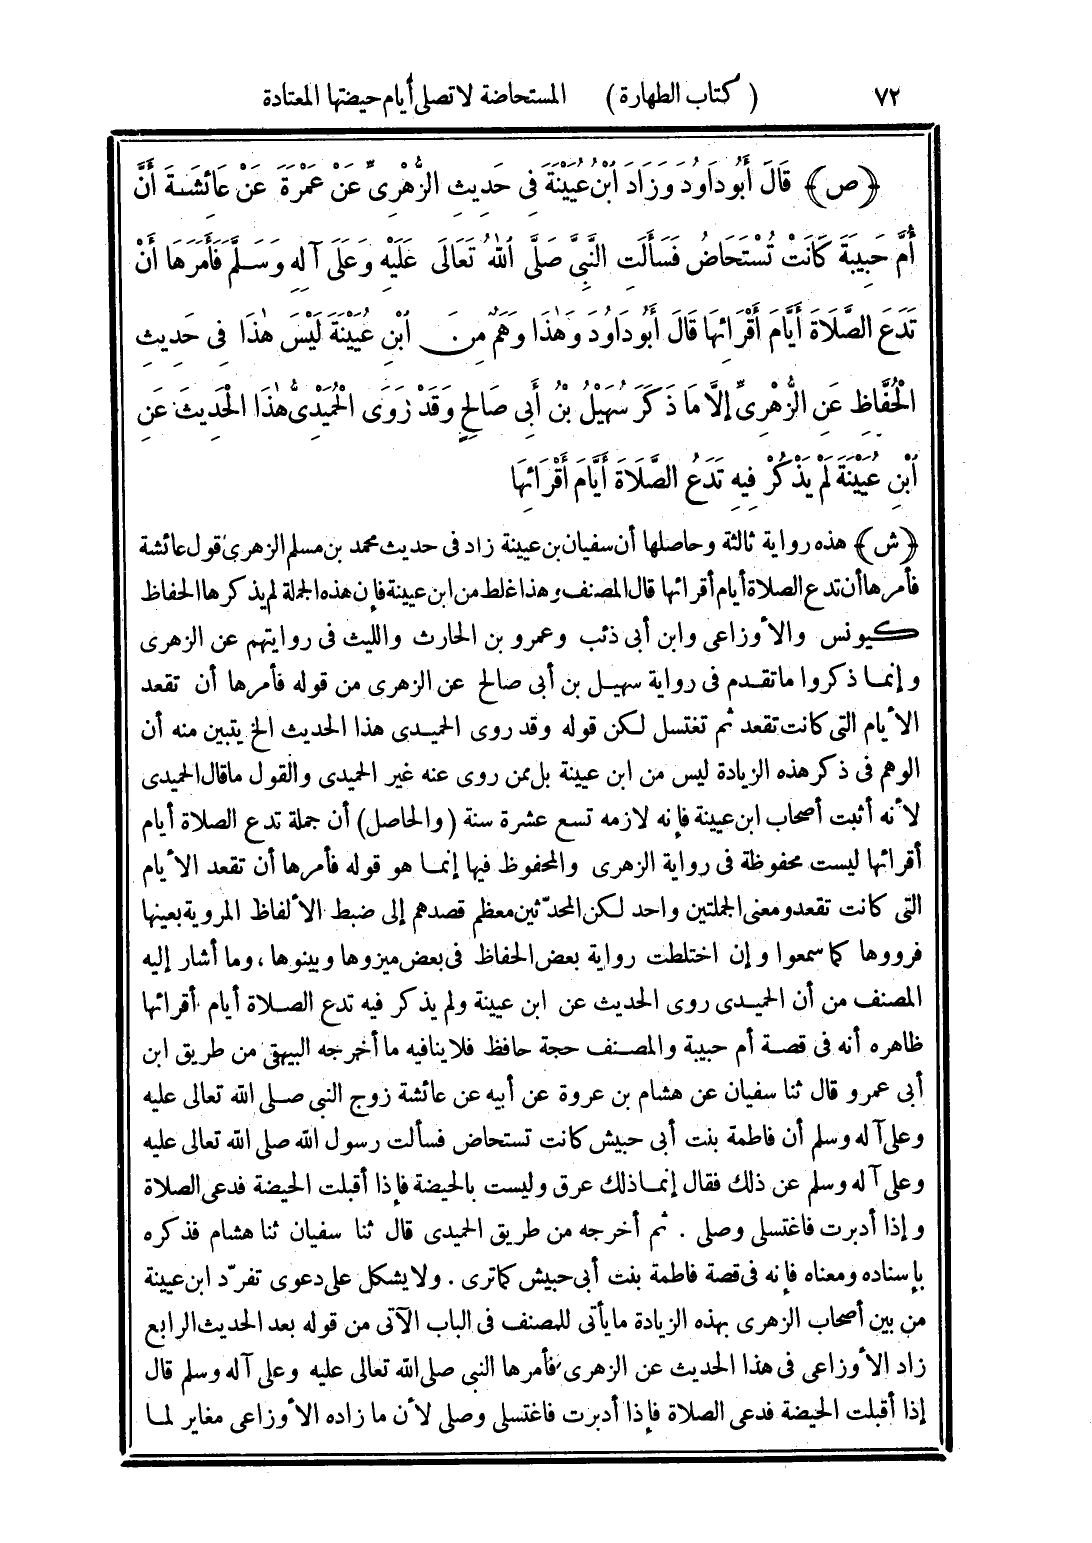 ٧٢ ( كتاب الطهارة ) المستحاضة لا تصلى أيام حيضتها المعتادة
﴿ص﴾ قَالَ أَبُو دَاوُد وَزَادَ ابْنُ عُيَيْنَةَ فِى حَدِيثِ الزُّهْرِىِّ عَنْ عَمْرَةَ عَنْ عَائِشَةَ أَنَّ
أُمَّ حَبِيبَةَ كَانَتْ تُسْتَحَاضُ فَسَأَلَتِ النَّبِىَّ صَلَّى اللهُ تَعَالَى عَلَيْهِ وَعَلَى آلِهِ وَسَلَّمَ فَأَمَرَهَا أَنْ
تَدَعَ الصَّلَاةَ أَيَّامَ أَقْرَائِهَا قَالَ أَبُو دَاوُدَ وَهٰذَا وَهَمٌ مِنَ ابْنِ عُيَيْنَةَ لَيْسَ هٰذَا فِى حَدِيثِ
الْحُفَّاظِ عَنِ الزُّهْرِىِّ إِلَّا مَا ذَكَرَ سُهَيْلُ بْنُ أَبِى صَالِحٍ وَقَدْ رَوَى الْحُمَيْدِىُّ هٰذَا الْحَدِيثَ عَنِ
ابْنِ عُيَيْنَةَ لَمْ يَذْكُرْ فِيهِ تَدَعُ الصَّلَاةَ أَيَّامَ أَقْرَائِهَا
﴿ش﴾ هذه رواية ثالثة وحاصلها أن سفيان بن عيينة زاد فى حديث محمد بن مسلم الزهرى قول عائشة
فأمرها أن تدع الصلاة أيام أقرائها قال المصنف وهذا غلط من ابن عيينة فإن هذه الجملة لم يذكرها الحفاظ
كيونس والأوزاعى وابن أبى ذئب وعمرو بن الحارث والليث فى روايتهم عن الزهرى
وإنما ذكروا ما تقدم فى رواية سهيل بن أبى صالح عن الزهرى من قوله فأمرها أن تقعد
الأيام التى كانت تقعد ثم تغتسل لكن قوله وقد روى الحميدى هذا الحديث الخ يتبين منه أن
الوهم فى ذكر هذه الزيادة ليس من ابن عيينة بل ممن روى عنه غير الحميدى والقول ما قال الحميدى
لأنه أثبت أصحاب ابن عيينة فإنه لازمه تسع عشرة سنة (والحاصل) أن جملة تدع الصلاة أيام
أقرائها ليست محفوظة فى رواية الزهرى والمحفوظ فيها إنما هو قوله فأمرها أن تقعد الأيام
التى كانت تقعد ومعنى الجملتين واحد لكن المحدّثين معظم قصدهم إلى ضبط الألفاظ المروية بعينها
فرووها كما سمعوا وإن اختلطت رواية بعض الحفاظ فى بعض ميزوها وبينوها ، وما أشار إليه
المصنف من أن الحميدى روى الحديث عن ابن عيينة ولم يذكر فيه تدع الصلاة أيام أقرائها
ظاهره أنه فى قصة أم حبيبة والمصنف حجة حافظ فلا ينافيه ما أخرجه البيهقى من طريق ابن
أبى عمرو قال ثنا سفيان عن هشام بن عروة عن أبيه عن عائشة زوج النبى صلى الله تعالى عليه
وعلى آله وسلم أن فاطمة بنت أبى حبيش كانت تستحاض فسألت رسول الله صلى الله تعالى عليه
وعلى آله وسلم عن ذلك فقال إنما ذلك عرق وليست بالحيضة فإذا أقبلت الحيضة فدعى الصلاة
وإذا أدبرت فاغتسلى وصلى . ثم أخرجه من طريق الحميدى قال ثنا سفيان ثنا هشام فذكره
بإسناده ومعناه فإنه فى قصة فاطمة بنت أبى حبيش كما ترى . ولا يشكل على دعوى تفرّد ابن عيينة
من بين أصحاب الزهرى بهذه الزيادة ما يأتى للمصنف فى الباب الآتى من قوله بعد الحديث الرابع
زاد الأوزاعى فى هذا الحديث عن الزهرى فأمرها النبى صلى الله تعالى عليه وعلى آله وسلم قال
إذا أقبلت الحيضة فدعى الصلاة فإذا أدبرت فاغتسلى وصلى لأن ما زاده الأوزاعى مغاير لما